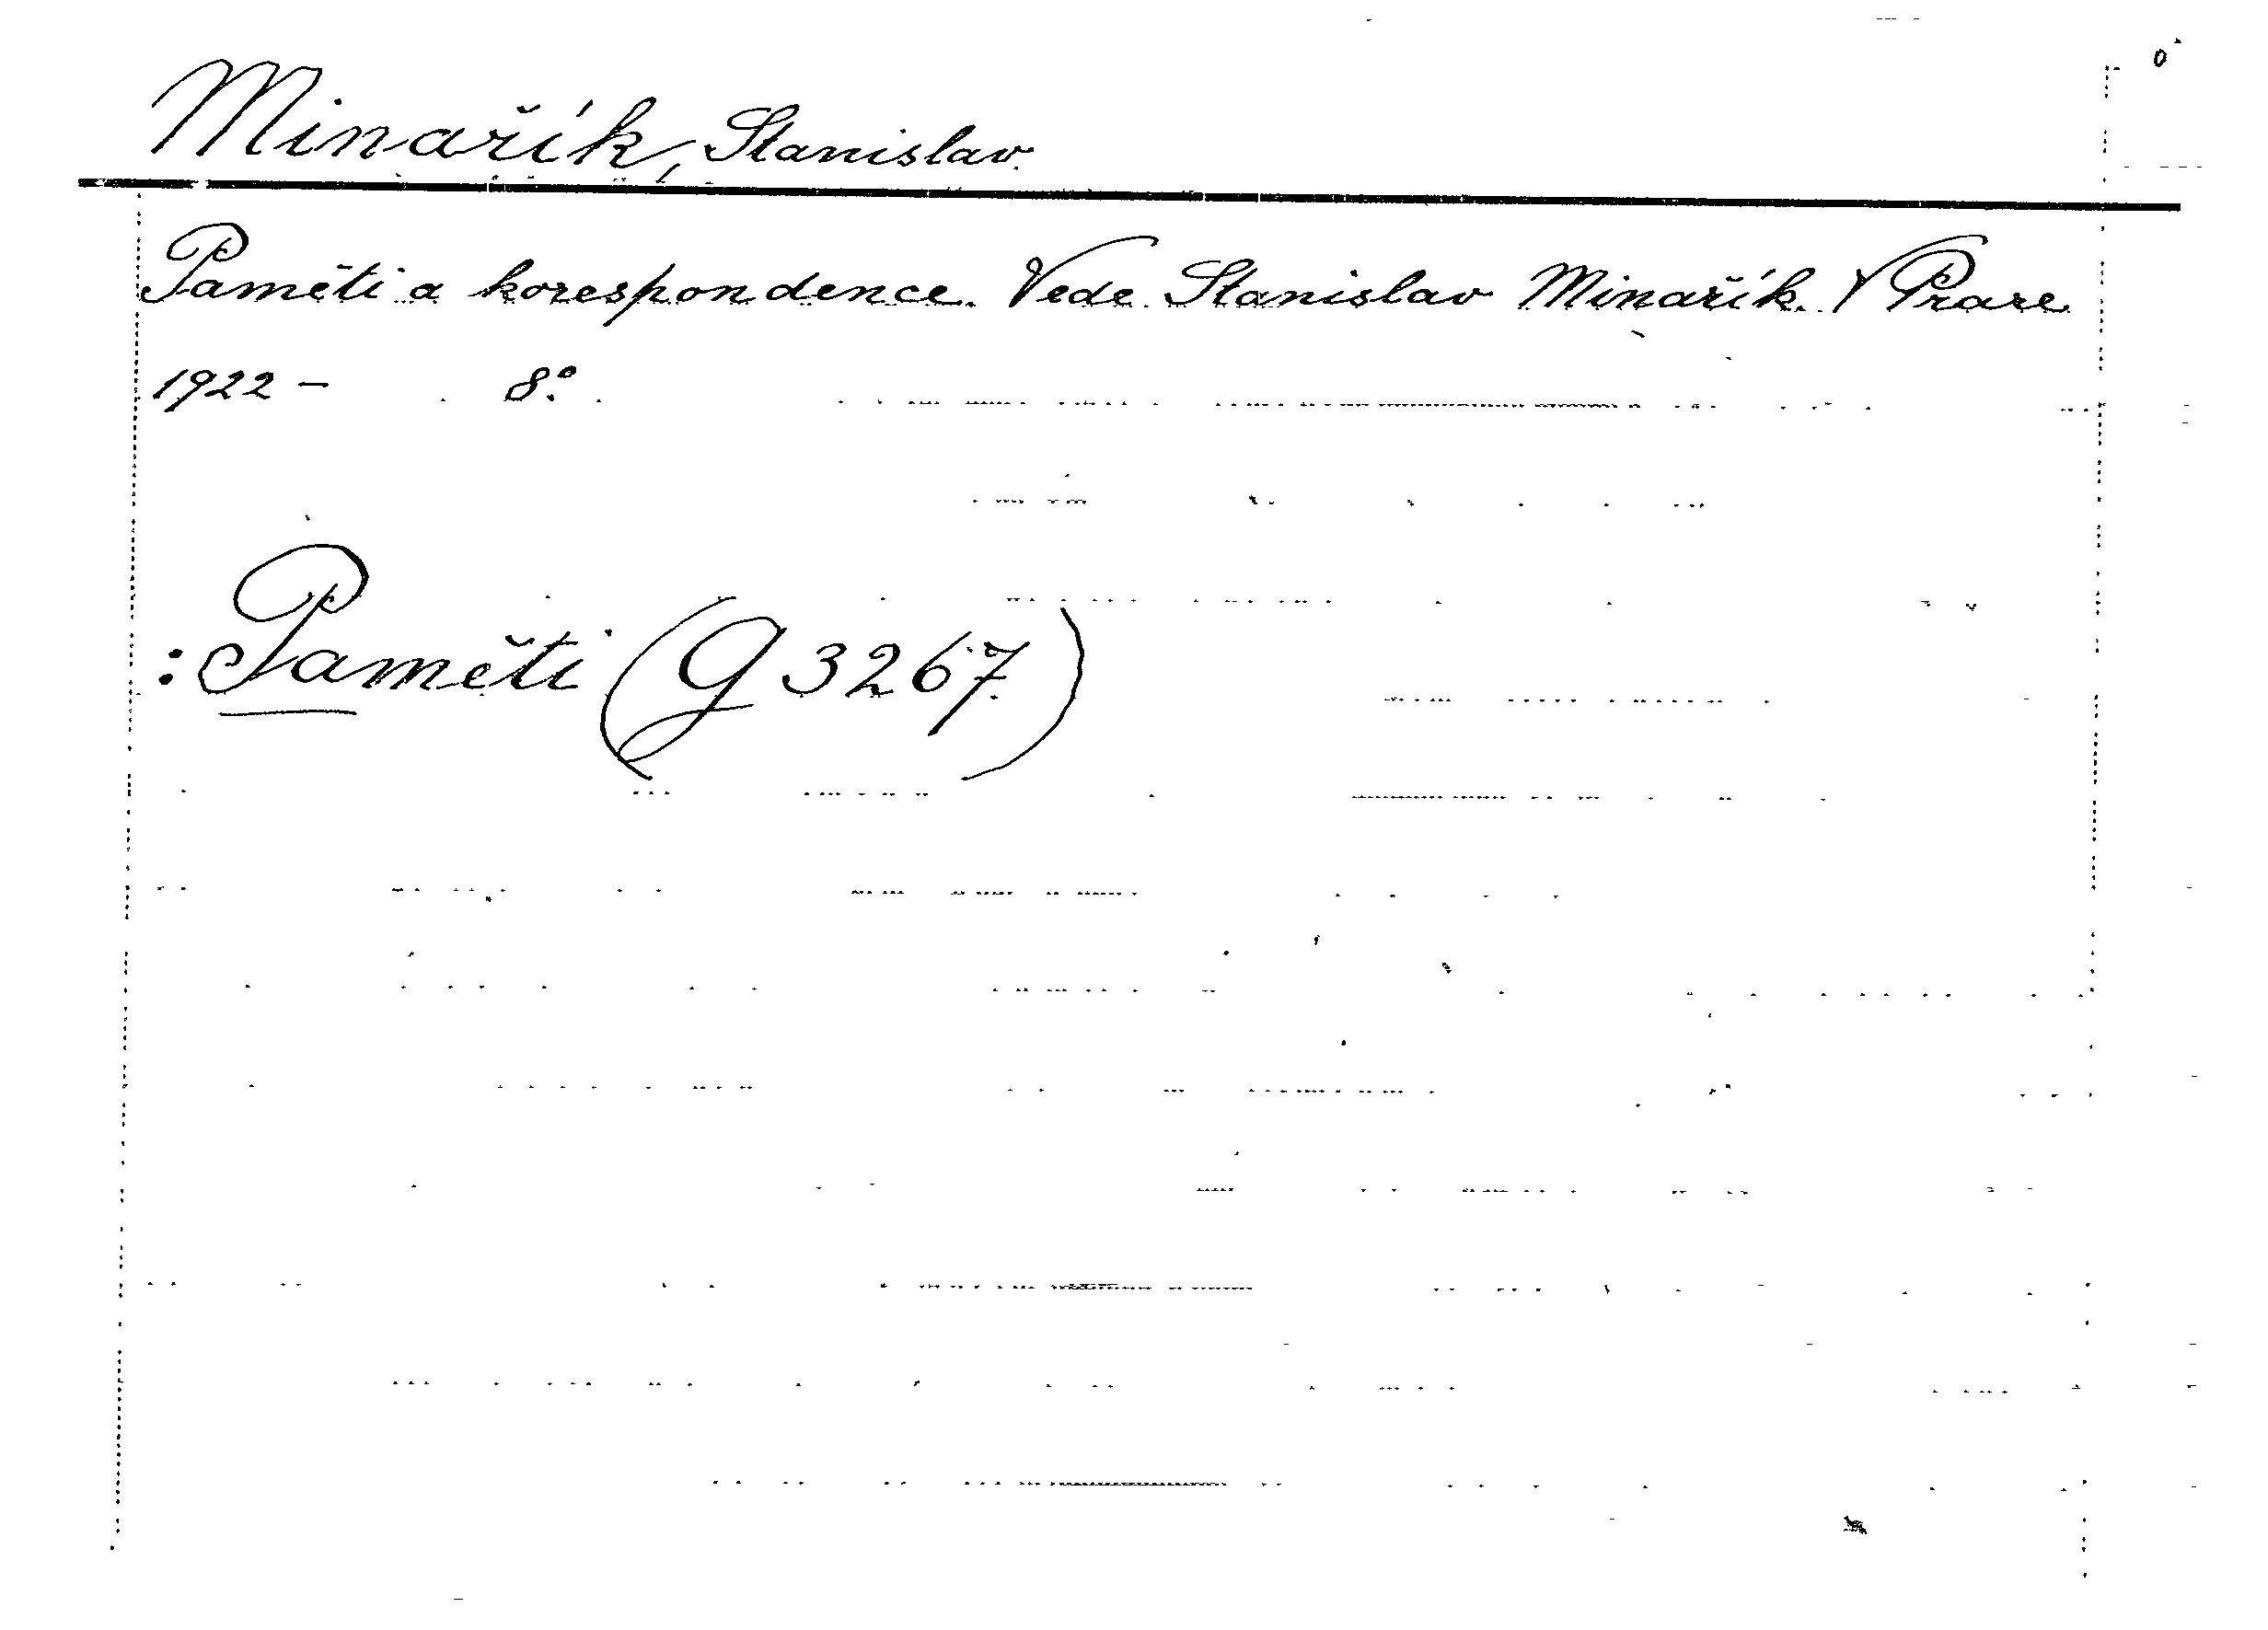 Minařík, Stanislav.
Paměti a korespondence. Vede Stanislav Minařík. V Praze
1922 – 8°.
: Paměti (G 3267)